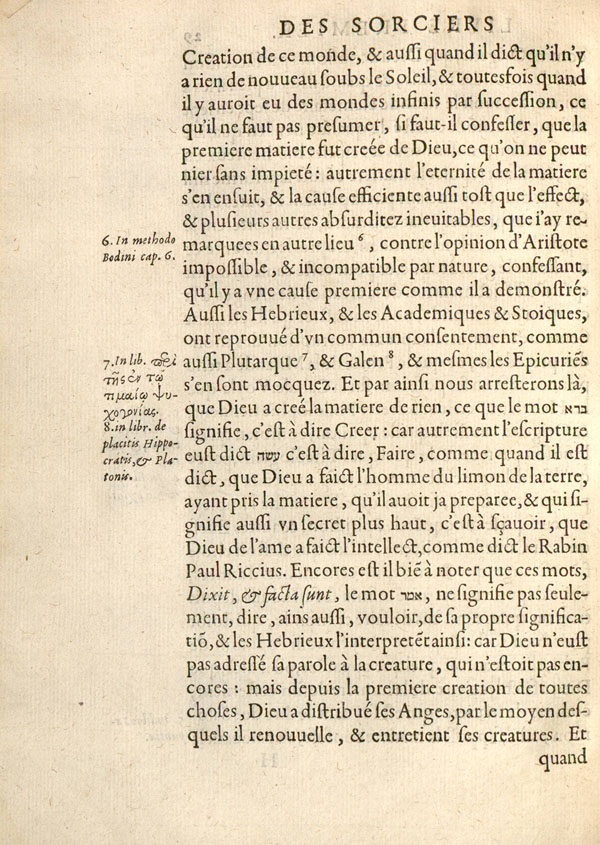 DES SORCIERS
Creation de ce monde, & auſſi quand il dict qu'il n'y
a rien de nouueau ſoubs le Soleil, & toutesfois quand
il y auroit eu des mondes infinis par ſucceſſion, ce
qu'il ne faut pas preſumer, ſi faut-il confeſſer, que la
premiere matiere fut creée de Dieu, ce qu'on ne peut
nier ſans impieté: autrement l'eternité de la matiere
s'en enſuit, & la cauſe efficiente auſſi toſt que l'effect,
& pluſieurs autres abſurditez ineuitables, que i'ay re-
marquees en autre lieu 6, contre l'opinion d'Ariſtote
impoſſible, & incompatible par nature, confeſſant,
qu'il y a vne cauſe premiere comme il a demonſtré.
Auſſi les Hebrieux, & les Academiques & Stoiques,
ont reprouué d'vn commun conſentement, comme
auſſi Plutarque 7, & Galen 8, & meſmes les Epicuriẽs
s'en ſont mocquez. Et par ainſi nous arreſterons là,
que Dieu a creé la matiere de rien, ce que le mot ברא
ſignifie, c'eſt à dire Creer: car autrement l'eſcripture
euſt dict עשה c'eſt à dire, Faire, comme quand il eſt
dict, que Dieu a faict l'homme du limon de la terre,
ayant pris la matiere, qu'il auoit ja preparee, & qui ſi-
gnifie auſſi vn ſecret plus haut, c'eſt à ſçauoir, que
Dieu de l'ame a faict l'intellect, comme dict le Rabin
Paul Riccius. Encores eſt il biẽ à noter que ces mots,
Dixit, & facta ſunt, le mot אמר, ne ſignifie pas ſeule-
ment, dire, ains auſſi, vouloir, de ſa propre ſignifica-
tiõ, & les Hebrieux l'interpretẽt ainſi: car Dieu n'euſt
pas adreſſé ſa parole à la creature, qui n'eſtoit pas en-
cores: mais depuis la premiere creation de toutes
choſes, Dieu a diſtribué ſes Anges, par le moyen deſ-
quels il renouuelle, & entretient ſes creatures. Et
quand
6. In methodo
Bodini cap. 6.
7. In lib. περὶ
τῆς ἐν τῷ
τιμαίῳ ψυ-
χογονίας.
8. in libr. de
placitis Hippo-
cratis, & Pla-
tonis.